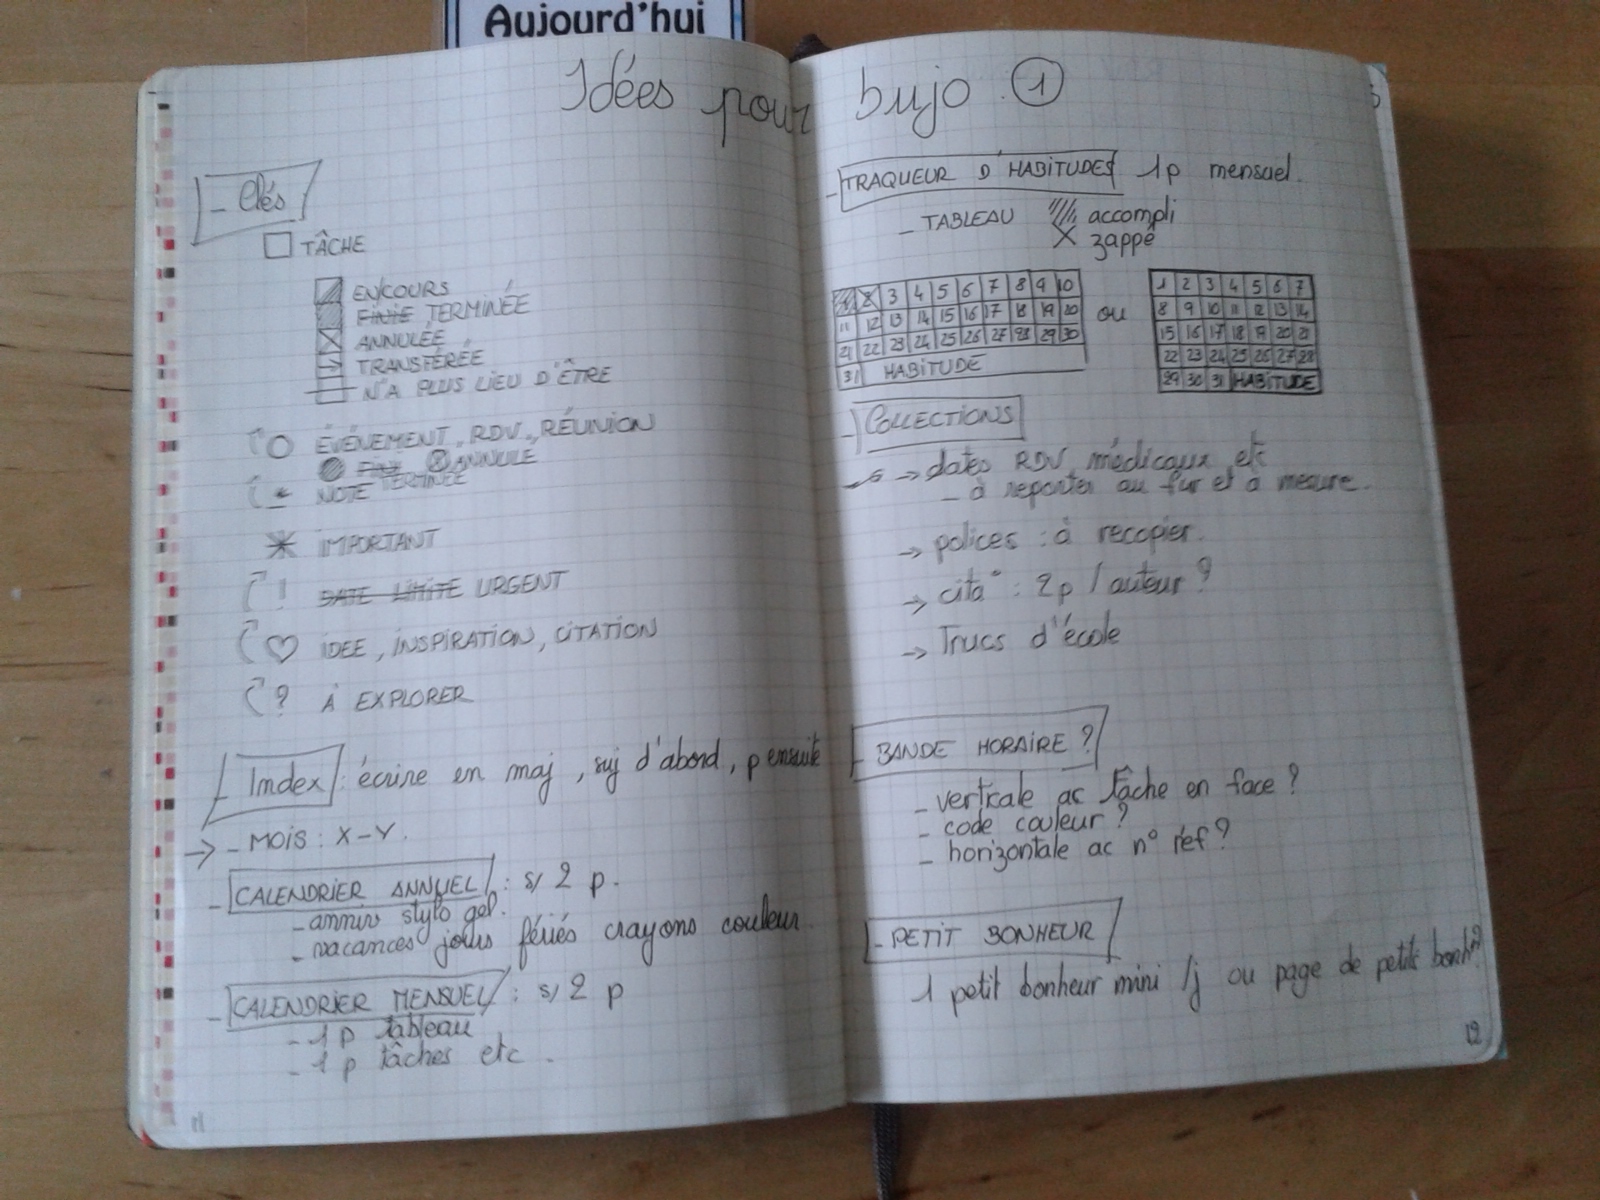 Aujourd'hui
Idées pour bujo ①
- Clés
□ TÂCHE
EN COURS
FINIE TERMINÉE
ANNULÉE
TRANSFÉRÉE
N'A PLUS LIEU D'ÊTRE
ÉVÉNEMENT, RDV, RÉUNION
FINI ANNULÉ
TERMINÉE
NOTE
IMPORTANT
! DATE LIMITE URGENT
♡ IDÉE, INSPIRATION, CITATION
? À EXPLORER
- Index : écrire en maj, suj d'abord, p ensuite
→ - MOIS : X-Y.
- CALENDRIER ANNUEL : s/ 2 p.
- annivs stylo gel.
- vacances jours fériés crayons couleur.
- CALENDRIER MENSUEL : s/ 2 p
- 1 p tableau
- 1 p tâches etc.
11
- TRAQUEUR D'HABITUDES 1p mensuel.
- TABLEAU accompli
zappé
1 2 3 4 5 6 7 8 9 10
11 12 13 14 15 16 17 18 19 20
21 22 23 24 25 26 27 28 29 30
31 HABITUDE
ou
1 2 3 4 5 6 7
8 9 10 11 12 13 14
15 16 17 18 19 20 21
22 23 24 25 26 27 28
29 30 31 HABITUDE
- COLLECTIONS
→ dates RDV médicaux etc
- à reporter au fur et à mesure.
→ polices : à recopier.
→ cita° : 2p / auteur ?
→ Trucs d'école
- BANDE HORAIRE ?
- verticale ac tâche en face ?
- code couleur ?
- horizontale ac n° réf ?
- PETIT BONHEUR
1 petit bonheur mini /j ou page de petits bonh ?
12